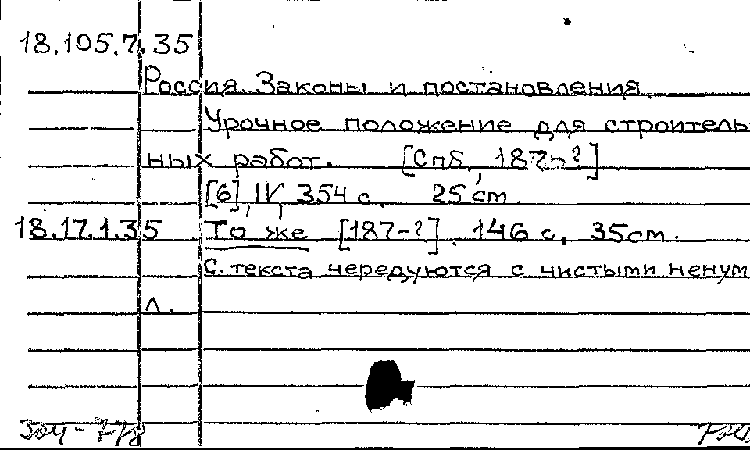 18.105.7.35
Россия. Законы и постановления
Урочное положение для строитель
ных работ. [Спб, 187-?]
[6], IV, 354 с. 25 см.
18.17.1.35 То же [187-?]. 146 с. 35см.
С. текста чередуются с чистыми ненум
л.